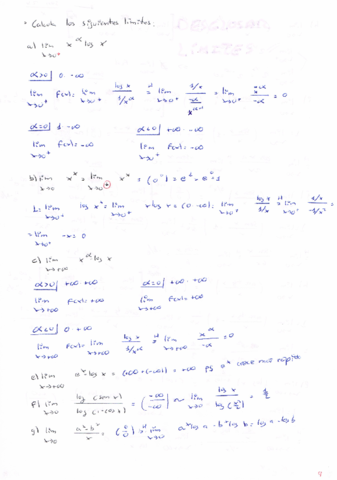 • Calcula los siguientes límites.
a) lim x→0⁺ x^α log x
α>0| 0·-∞
lim x→0⁺ f(x) = lim x→0⁺ log x / 1/x^α = lim x→0⁺ = lim x→0⁺ x^α/-α = 0
α=0| 1·-∞ α<0| +∞·-∞
lim x→0⁺ f(x) = -∞ lim x→0⁺ f(x) = -∞
b) lim x→0 x^x = lim x→0⁺ x^x = (0⁰) = e^L = e⁰ = 1
L = lim x→0⁺ log x^x = lim x→0⁺ x log x = (0·∞) = lim x→0⁺ log x / 1/x = lim x→0⁺ 1/x / -1/x² =
= lim x→0⁺ -x = 0
c) lim x→+∞ x^α log x
α>0| +∞·+∞ α=0|
lim x→+∞ f(x) = +∞ lim x→+∞ f(x) = +∞
α<0| 0·+∞
lim x→+∞ f(x) = lim x→+∞ log x / 1/x^α = lim x→+∞ x^α/-α = 0
e) lim x→+∞ = +∞ crece más rápido
f) lim x→0 = lim x→0 = 1/2
g) lim x→0 a^x-b^x / x = (0/0) = lim x→0 a^x log a - b^x log b = log a - log b